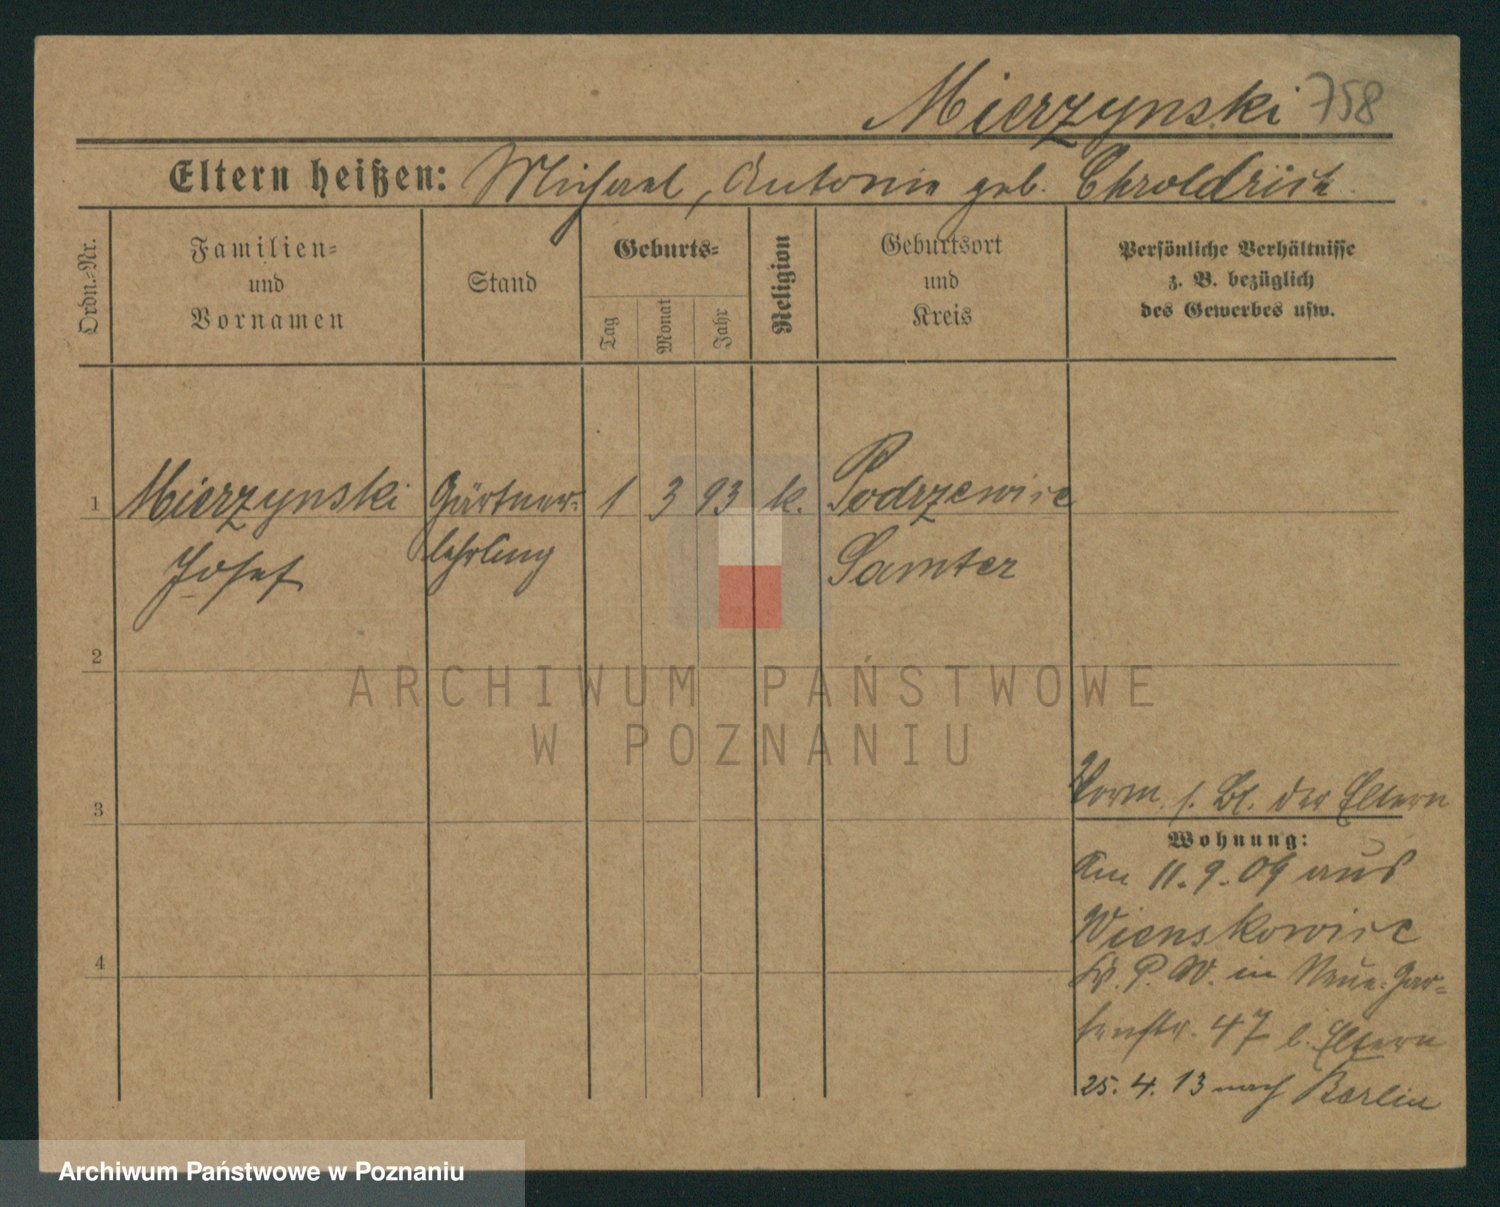 Mierzynski 758
Eltern heißen: Michael, Antonie geb. Chroldrich
Ordn.-Nr.
Familien-
und
Vornamen
Stand
Geburts-
Tag
Monat
Jahr
Religion
Geburtsort
und
Kreis
Persönliche Verhältnisse
z. B. bezüglich
des Gewerbes usw.
1 Mierzynski Gärtner- 1 3 93 k. Podrzewie
Josef lehrling Samter
2
ARCHIWUM PAŃSTWOWE
W POZNANIU
3
Vorm. s. Bl. der Eltern
Wohnung:
Am 11.9.09 aus
Wienskowice
Kr. P. W. in Neue Gar-
tenstr. 47 b. Eltern
25.4.13 nach Berlin
4
Archiwum Państwowe w Poznaniu